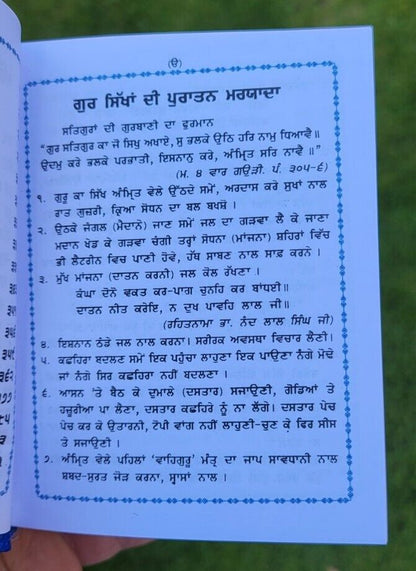 (ੳ)
ਗੁਰ ਸਿੱਖਾਂ ਦੀ ਪੁਰਾਤਨ ਮਰਯਾਦਾ
ਸਤਿਗੁਰਾਂ ਦੀ ਗੁਰਬਾਣੀ ਦਾ ਫੁਰਮਾਨ
“ਗੁਰ ਸਤਿਗੁਰ ਕਾ ਜੋ ਸਿਖੁ ਅਖਾਏ, ਸੁ ਭਲਕੇ ਉਠਿ ਹਰਿ ਨਾਮੁ ਧਿਆਵੈ॥
ਉਦਮੁ ਕਰੇ ਭਲਕੇ ਪਰਭਾਤੀ, ਇਸਨਾਨੁ ਕਰੇ, ਅੰਮ੍ਰਿਤ ਸਰਿ ਨਾਵੈ॥”
(ਮ. ੪ ਵਾਰ ਗਉੜੀ ਪੰ. ੩੦੫-੬)
੧. ਗੁਰੂ ਕਾ ਸਿੱਖ ਅੰਮ੍ਰਿਤ ਵੇਲੇ ਉੱਠਦੇ ਸਮੇਂ, ਅਰਦਾਸ ਕਰੇ ਸੁਖਾਂ ਨਾਲ
ਰਾਤ ਗੁਜ਼ਰੀ, ਕ੍ਰਿਆ ਸੋਧਨ ਦਾ ਬਲ ਬਖਸ਼ੋ।
੨. ਉਠਕੇ ਜੰਗਲ (ਮੈਦਾਨੇ) ਜਾਣ ਸਮੇਂ ਜਲ ਦਾ ਗੜਵਾ ਲੈ ਕੇ ਜਾਣਾ
ਮਦਾਨ ਖੋਡ ਕੇ ਗੜਵਾ ਚੰਗੀ ਤਰ੍ਹਾਂ ਸੋਧਨਾ (ਮਾਂਜਨਾ) ਸ਼ਹਿਰਾਂ ਵਿੱਚ
ਭੀ ਲੈਟਰੀਨ ਵਿਚ ਪਾਣੀ ਹੋਵੇ, ਹੱਥ ਸਾਬਣ ਨਾਲ ਸਾਫ਼ ਕਰਨੇ।
੩. ਮੁੱਖ ਮਾਂਜਨਾ (ਦਾਤਨ ਕਰਨੀ) ਜਲ ਕੋਲ ਰੱਖਣਾ।
ਕੰਘਾ ਦੋਨੋ ਵਕਤ ਕਰ-ਪਾਗ ਚੁਨਹਿ ਕਰ ਬਾਂਧਈ॥
ਦਾਤਨ ਨੀਤ ਕਰੇਇ, ਨ ਦੁਖ ਪਾਵਹਿ ਲਾਲ ਜੀ॥
(ਰਹਿਤਨਾਮਾ ਭਾ. ਨੰਦ ਲਾਲ ਸਿੰਘ ਜੀ)
੪. ਇਸ਼ਨਾਨ ਠੰਡੇ ਜਲ ਨਾਲ ਕਰਨਾ। ਸਰੀਰਕ ਅਵਸਥਾ ਵਿਚਾਰ ਲੈਣੀ।
੫. ਕਛਹਿਰਾ ਬਦਲਣ ਸਮੇਂ ਇਕ ਪਹੁੰਚਾ ਲਾਹੁਣਾ ਇਕ ਪਾਉਣਾ ਨੰਗੇ ਮੋਢੇ
ਜਾਂ ਨੰਗੇ ਸਿਰ ਕਛਹਿਰਾ ਨਹੀਂ ਬਦਲਣਾ।
੬. ਆਸਨ ’ਤੇ ਬੈਠ ਕੇ ਦੁਮਾਲੇ (ਦਸਤਾਰ) ਸਜਾਉਣੀ, ਗੋਡਿਆਂ ਤੇ
ਹਜ਼ੂਰੀਆ ਪਾ ਲੈਣਾ, ਦਸਤਾਰ ਕਛਹਿਰੇ ਨੂੰ ਨਾ ਲੱਗੇ। ਦਸਤਾਰ ਪੇਚ
ਪੇਚ ਕਰ ਕੇ ਉਤਾਰਨੀ, ਟੋਪੀ ਵਾਂਗ ਨਹੀਂ ਲਾਹੁਣੀ-ਚੁਣ ਕੇ ਫਿਰ ਸੀਸ
ਤੇ ਸਜਾਉਣੀ।
੭. ਅੰਮ੍ਰਿਤ ਵੇਲੇ ਪਹਿਲਾਂ ‘ਵਾਹਿਗੁਰੂ’ ਮੰਤ੍ਰ ਦਾ ਜਾਪ ਸਾਵਧਾਨੀ ਨਾਲ
ਸ਼ਬਦ-ਸੁਰਤ ਜੋੜ ਕਰਨਾ, ਸ੍ਵਾਸਾਂ ਨਾਲ।